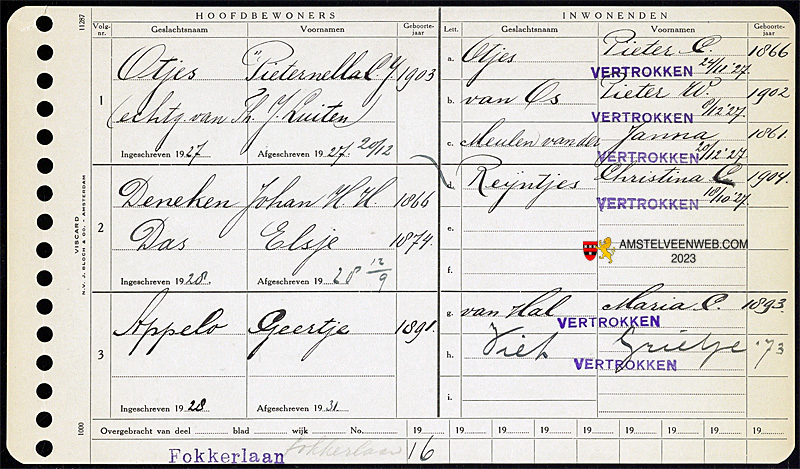 HOOFDBEWONERS
Volg-nr. Geslachtsnaam Voornamen Geboorte-jaar
1 Otjes Pieternella C. J. 1903
(echtg. van Th. J. Luiten)
Ingeschreven 1927 Afgeschreven 1927 20/12
2 Deneken Johan H. H. 1866
Das Elsje 1874
Ingeschreven 1928 Afgeschreven 1928 12/9
3 Appelo Geertje 1891
Ingeschreven 1928 Afgeschreven 1931
INWONENDEN
Lett. Geslachtsnaam Voornamen Geboorte-jaar
a. Otjes Pieter C. 1866
VERTROKKEN 24/11 '27
b. van Os Pieter W. 1902
VERTROKKEN 9/12 '27
c. Meulen van der Janna 1861
VERTROKKEN 20/12 '27
d. Reijntjes Christina C 1904
VERTROKKEN 18/10 27
e.
f.
AMSTELVEENWEB.COM
2023
g. van Hal Maria C. 1893
VERTROKKEN
h. Grietje '73
VERTROKKEN
i.
Overgebracht van deel blad wijk No. 19 19 19 19 19 19 19 19
Fokkerlaan Fokkerlaan 16
11287
VISCARD
N.V. J. BLOCH & CO. - AMSTERDAM
1000